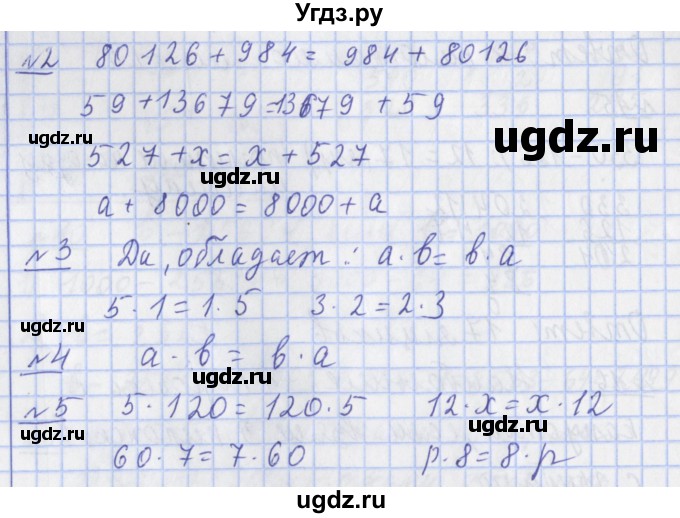 Угдз.ру
№2 80126 + 984 = 984 + 80126
59 + 13679 = 13679 + 59
ugdz.ru ugdz.ru
527 + x = x + 527
ugdz.ru
a + 8000 = 8000 + a
№3 Да, обладает: a · в = в · a
5 · 1 = 1 · 5 3 · 2 = 2 · 3
ugdz.ru ugdz.ru
№4 a · в = в · a
ugdz.ru
№5 5 · 120 = 120 · 5 12 · x = x · 12
ugdz.ru ugdz.ru
60 · 7 = 7 · 60 p · 8 = 8 · p
ugdz.ru ugdz.ru